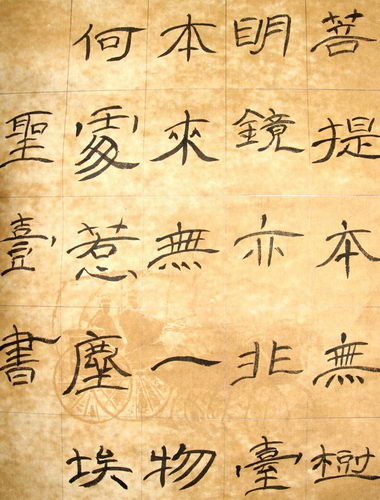 菩提本無樹
明鏡亦非臺
本來無一物
何處惹塵埃
聖書